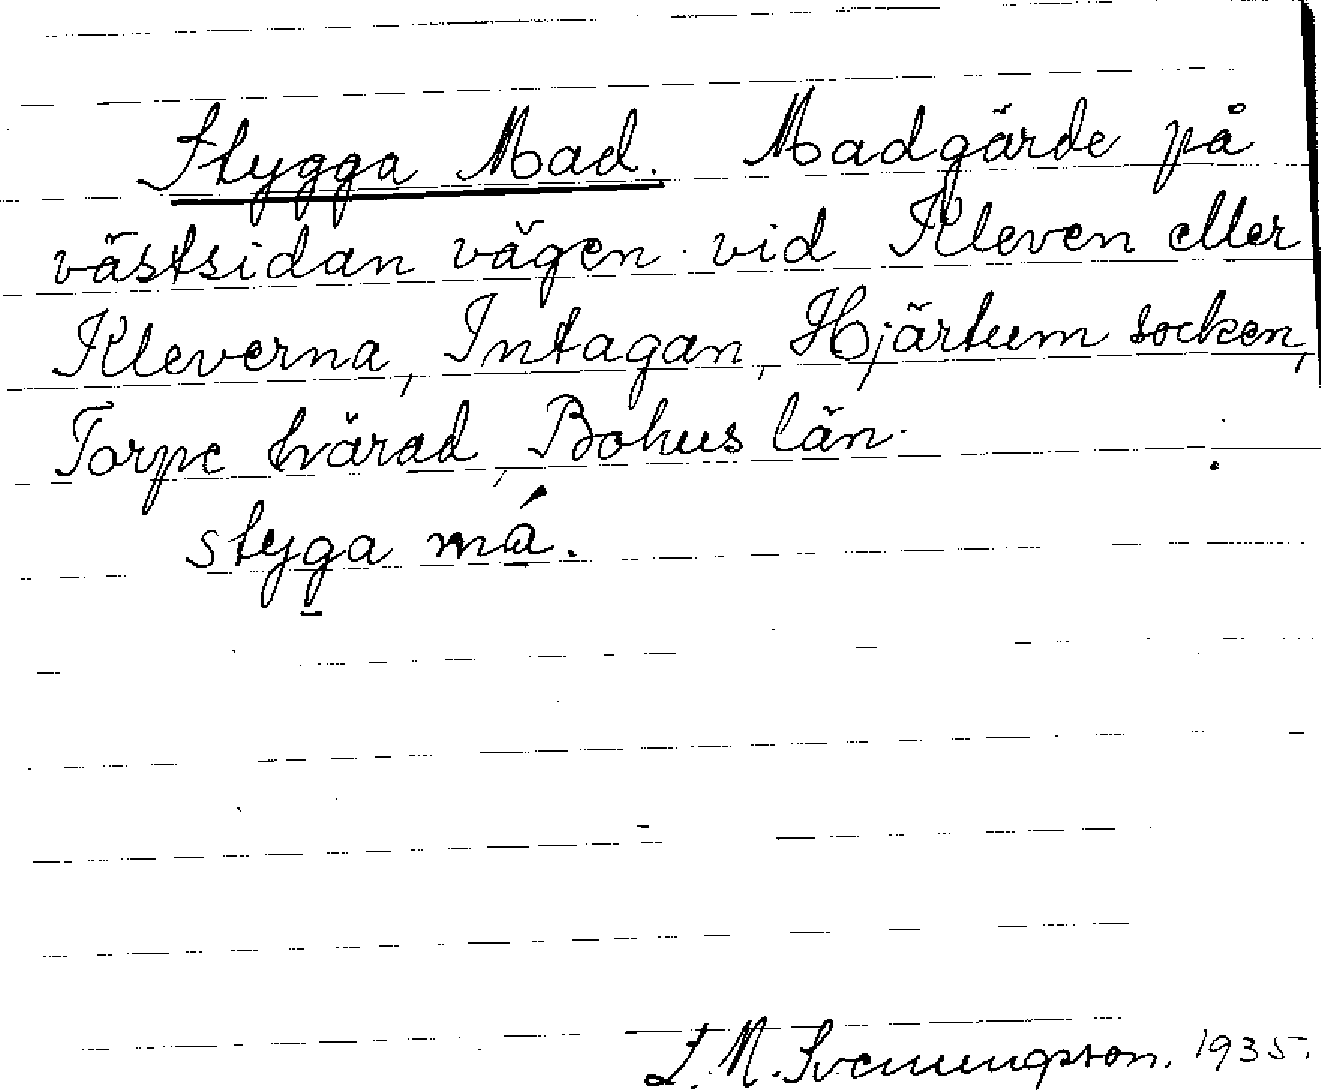 Stygga Mad. Madgärde på
västsidan vägen vid Kleven eller
Kleverna, Intagan, Hjärtum socken,
Torpe härad, Bohus län.
styga må.
L. M. Svenungsson. 1935.